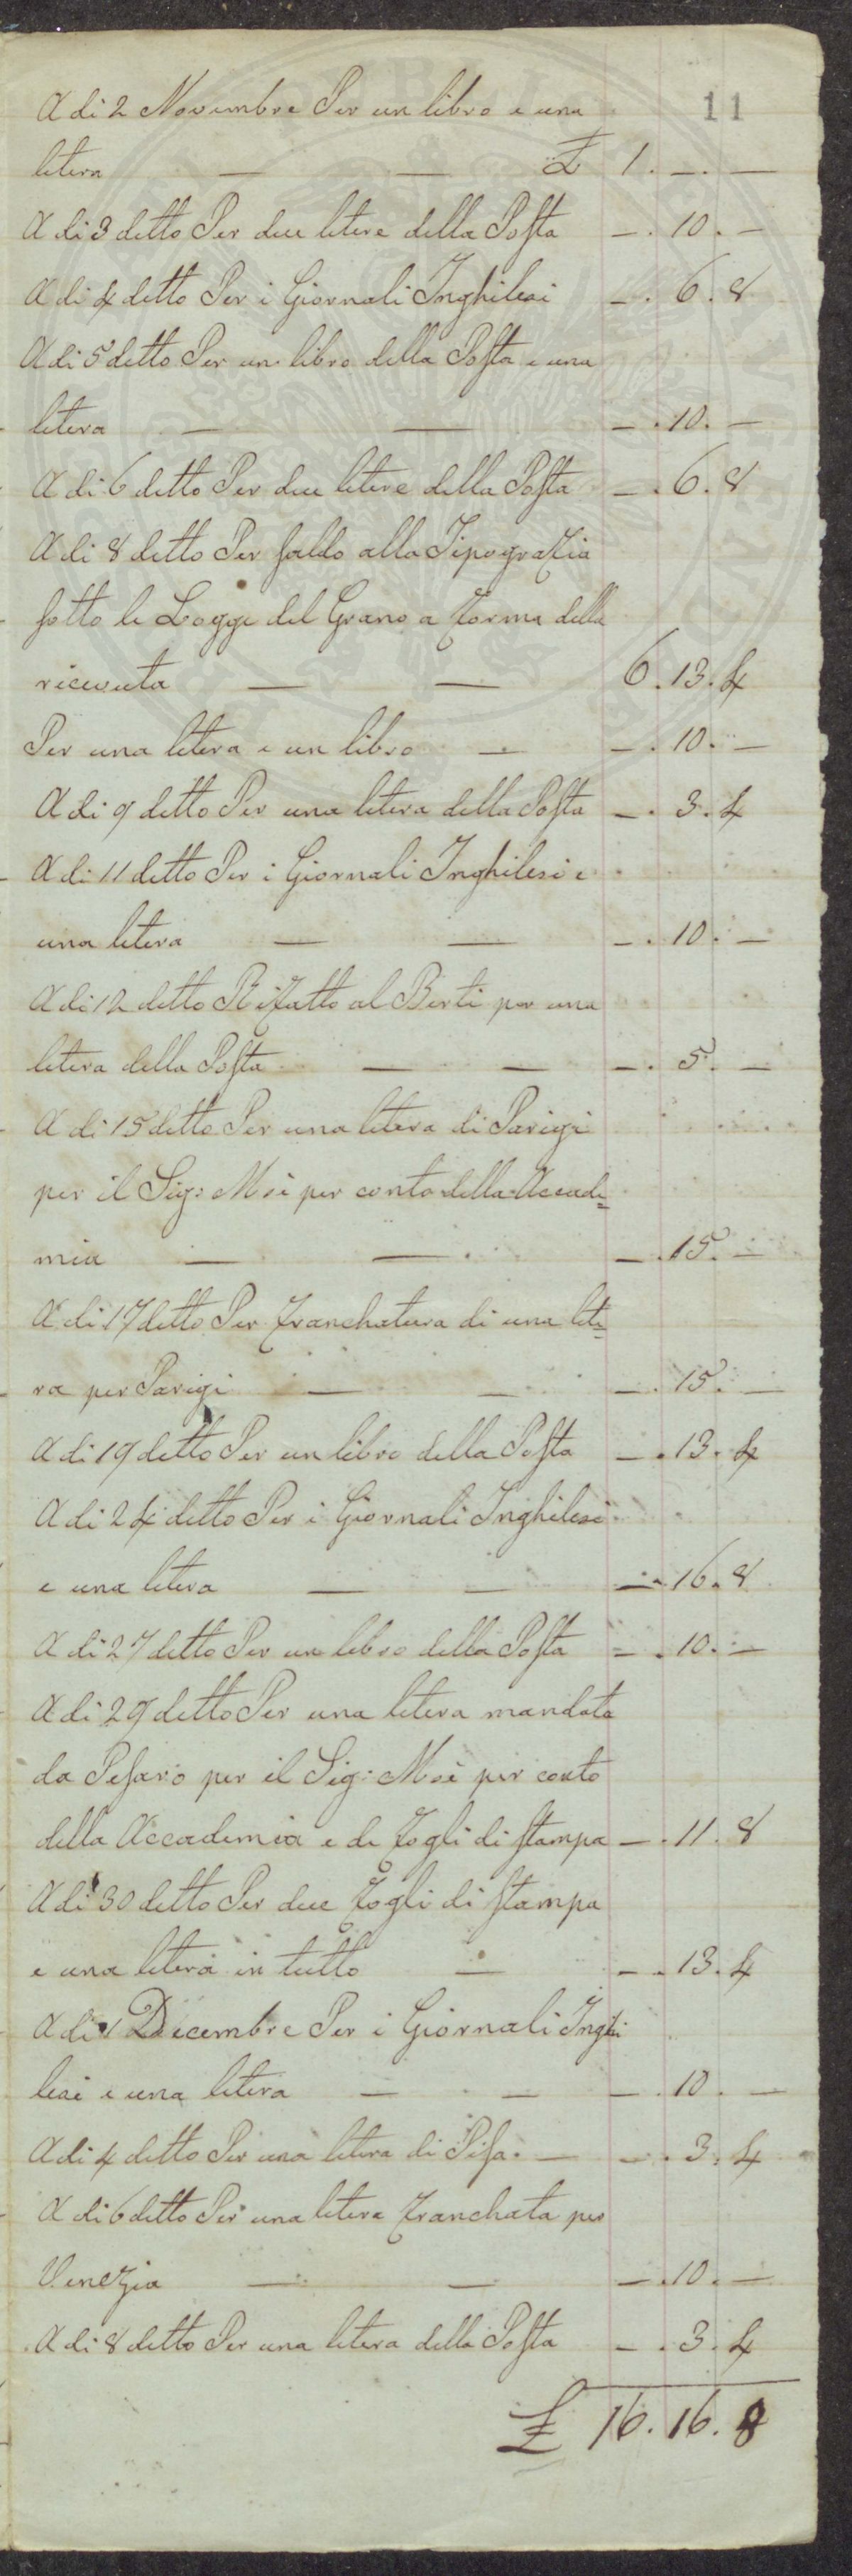 11
A di 2 Novembre Per un libro e una
letera — — £ 1. —. —
A di 3 detto Per due letere della Posta —. 10. —
A di 4 detto Per i Giornali Inghilesi —. 6. 8
A di 5 detto Per un libro della Posta e una
letera — — —. 10. —
A di 6 detto Per due letere della Posta —. 6. 8
A di 8 detto Per saldo alla Tipografia
sotto le Logge del Grano a forma della
ricevuta — — 6. 13. 4
Per una letera e un libro — —. 10. —
A di 9 detto Per una letera della Posta —. 3. 4
A di 11 detto Per i Giornali Inghilesi e
una letera — — —. 10. —
A di 12 detto Rifatto al Berti per una
letera della Posta — — —. 5. —
A di 15 detto Per una letera di Parigi
per il Sig: Moi per conto della Accade=
mia — — —. 15. —
A di 17 detto Per franchatura di una lete=
ra per Parigi — — —. 15. —
A di 19 detto Per un libro della Posta —. 13. 4
A di 24 detto Per i Giornali Inghilesi
e una letera — — —. 16. 8
A di 27 detto Per un libro della Posta —. 10. —
A di 29 detto Per una letera mandata
da Pesaro per il Sig: Moi per conto
della Accademia e de fogli di stampa —. 11. 8
A di 30 detto Per due fogli di stampa
e una letera in tutto — —. 13. 4
A di 1 Decembre Per i Giornali Inghi
lesi e una letera — — —. 10. —
A di 4 detto Per una letera di Pisa. — —. 3. 4
A di 6 detto Per una letera franchata per
Venezia — — —. 10. —
A di 8 detto Per una letera della Posta —. 3. 4
£ 16. 16. 8